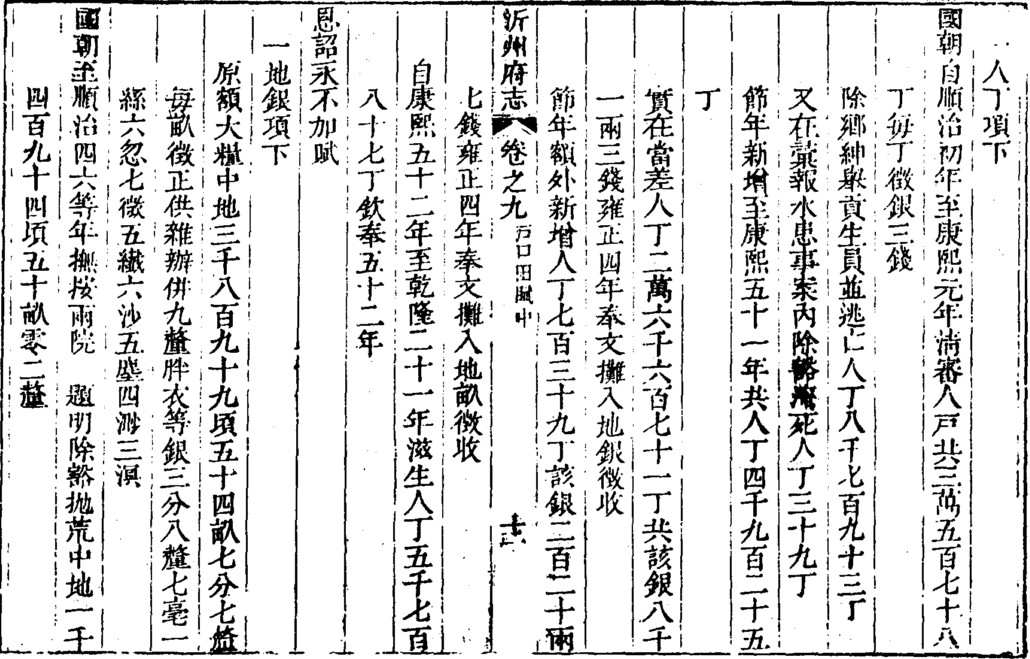 一人丁項下
國朝自順治初年至康熙元年淸審人戸共三萬五百七十八
丁每丁徵銀三錢
除鄉紳舉貢生員並逃亡人丁八千七百九十三丁
又在彙報水患事案內除豁渰死人丁三十九丁
節年新增至康熙五十一年共人丁四千九百二十五
丁
實在當差人丁二萬六千六百七十一丁共該銀八千
一兩三錢雍正四年奉文攤入地銀徵收
節年額外新增人丁七百三十九丁該銀二百二十兩
沂州府志 卷之九 戸口田賦中
七錢雍正四年奉文攤入地畝徵收
自康熙五十二年至乾隆二十一年滋生人丁五千七百
八十七丁欽奉五十二年
恩詔永不加賦
一地銀項下
原額大糧中地三千八百九十九頃五十四畝七分七釐
每畝徵正供雜辦併九釐胖衣等銀三分八釐七毫一
絲六忽七微五纖六沙五塵四渺三漠
國朝至順治四六等年撫按兩院 題明除豁拋荒中地一千
四百九十四頃五十畝零二釐